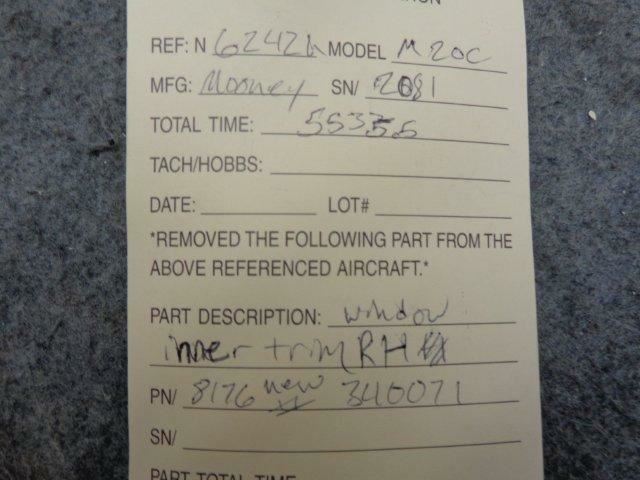 REF: N 6242 MODEL M20C
MFG: Mooney SN/ 2681
TOTAL TIME:
TACH/HOBBS:
DATE: LOT#
*REMOVED THE FOLLOWING PART FROM THE
ABOVE REFERENCED AIRCRAFT.*
PART DESCRIPTION: window
inner trim RH
PN/ 8176 new 340071
SN/
PART TOTAL TIME